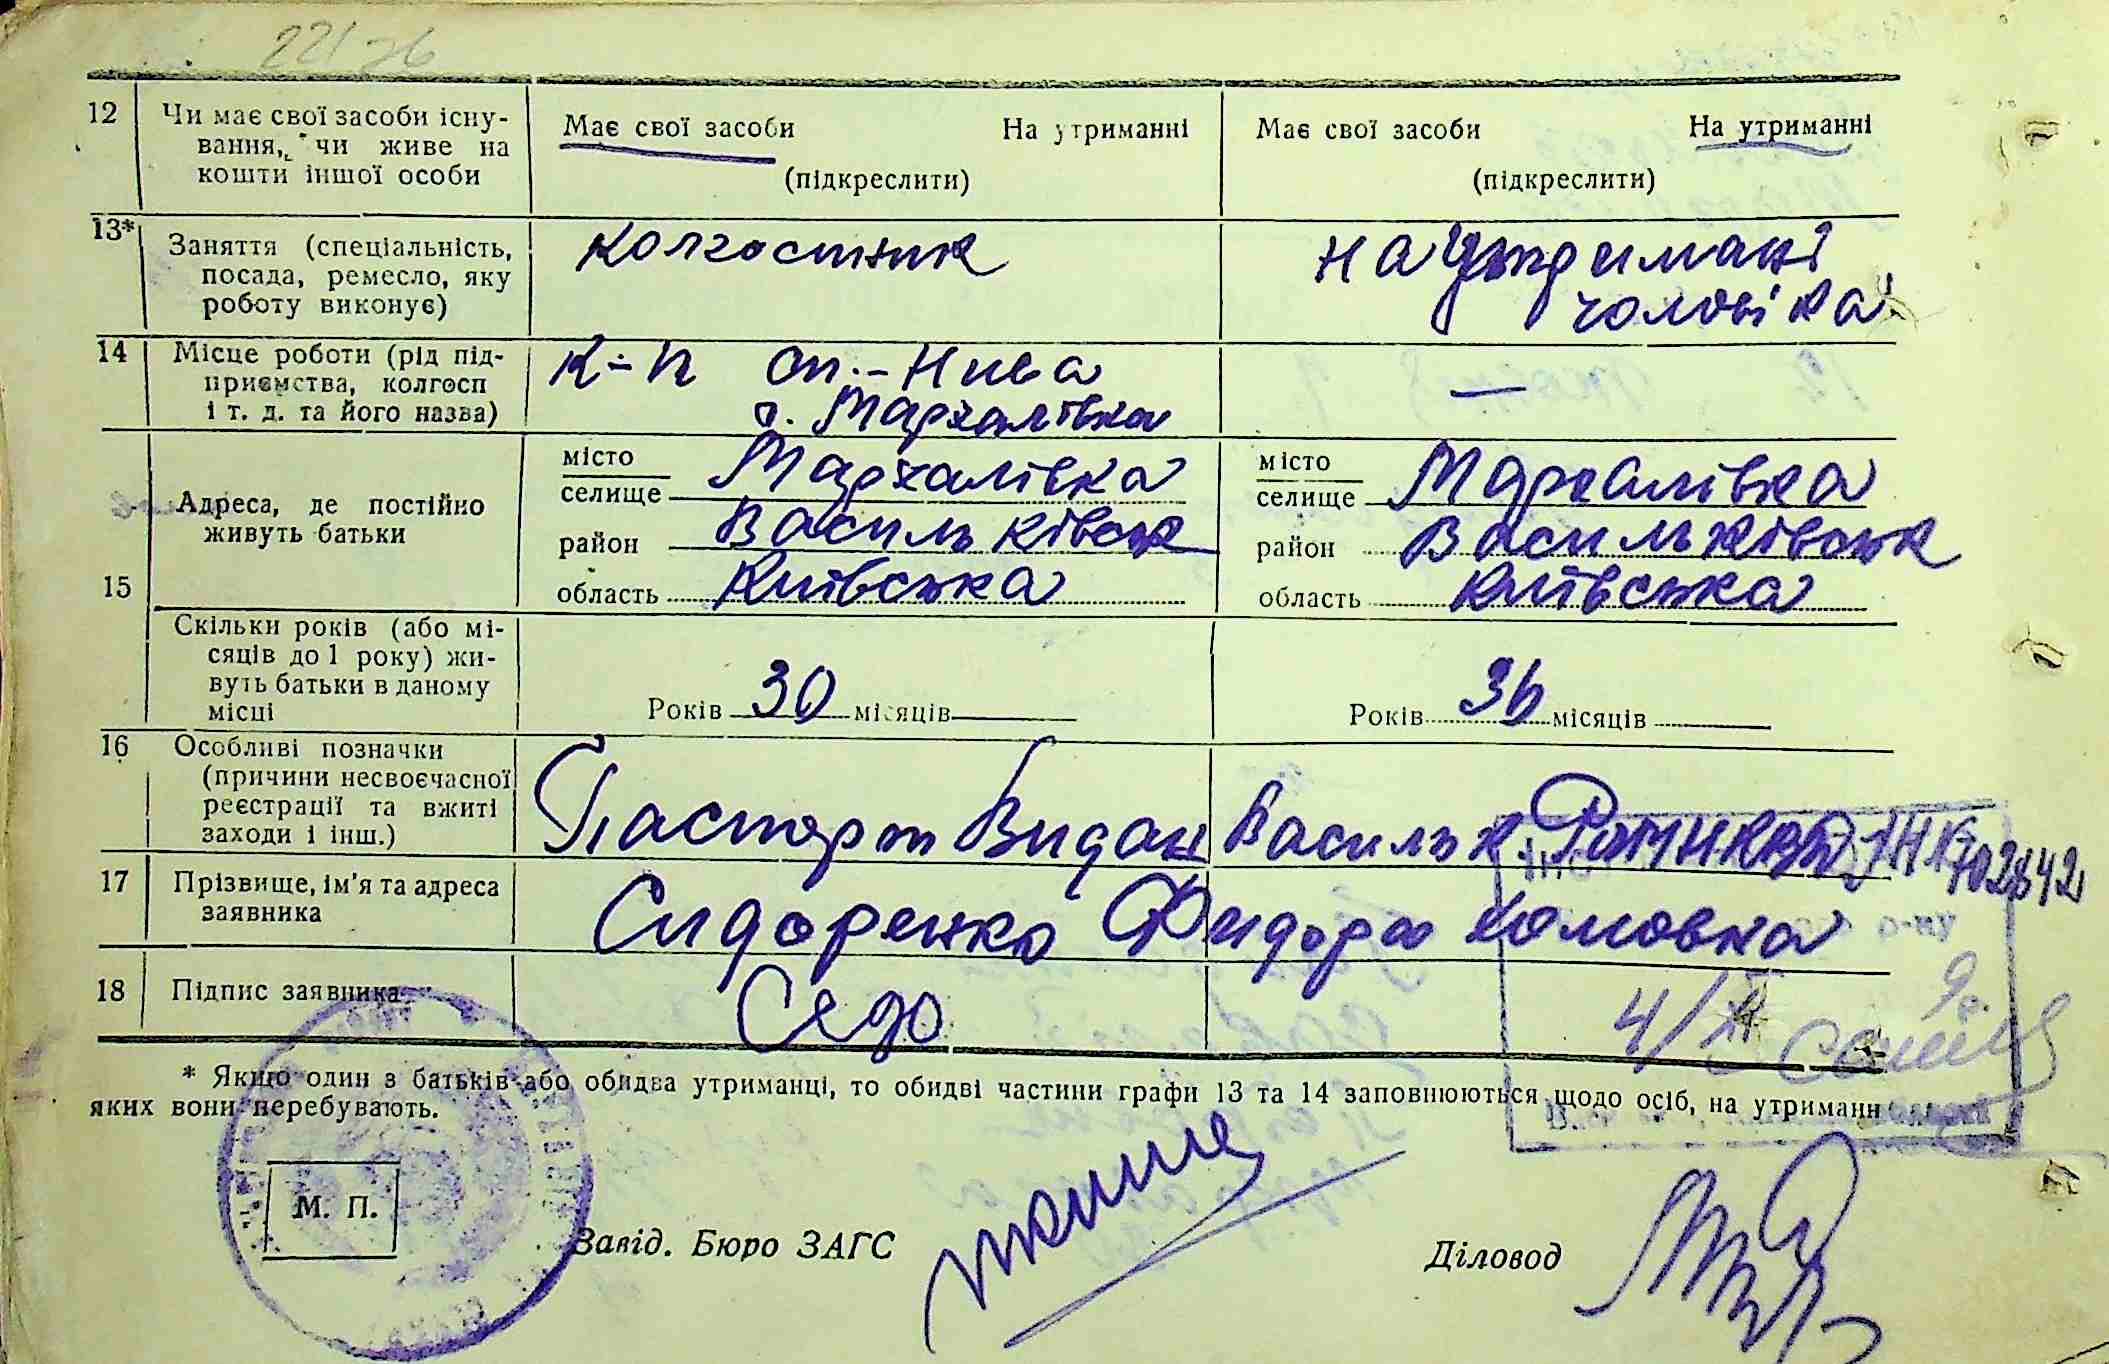 22/зв
12 Чи має свої засоби існу-
вання, чи живе на
кошти іншої особи
Має свої засоби На утриманні
(підкреслити)
Має свої засоби На утриманні
(підкреслити)
13* Заняття (спеціальність,
посада, ремесло, яку
роботу виконує)
колгостник
на утримані
чоловіка
14 Місце роботи (рід під-
приємства, колгосп
і т. д. та його назва)
К-п Нива
с. Мархалівка
—
15 Адреса, де постійно
живуть батьки
місто
селище Мархалівка
район Васильківськ
область Київська
місто
селище Мархалівка
район Васильківськ
область Київська
Скільки років (або мі-
сяців до 1 року) жи-
вуть батьки в даному
місці
Років 30 місяців
Років 36 місяців
16 Особливі позначки
(причини несвоєчасної
реєстрації та вжиті
заходи і інш.)
Пасторт Видан Васильк. 702842
17 Прізвище, ім'я та адреса
заявника
Сидоренко Фидора Хомовна
18 Підпис заявника
* Якщо один з батьків або обидва утриманці, то обидві частини графи 13 та 14 заповнюються щодо осіб, на утриманн
яких вони перебувають.
М. П.
Завід. Бюро ЗАГС
Діловод